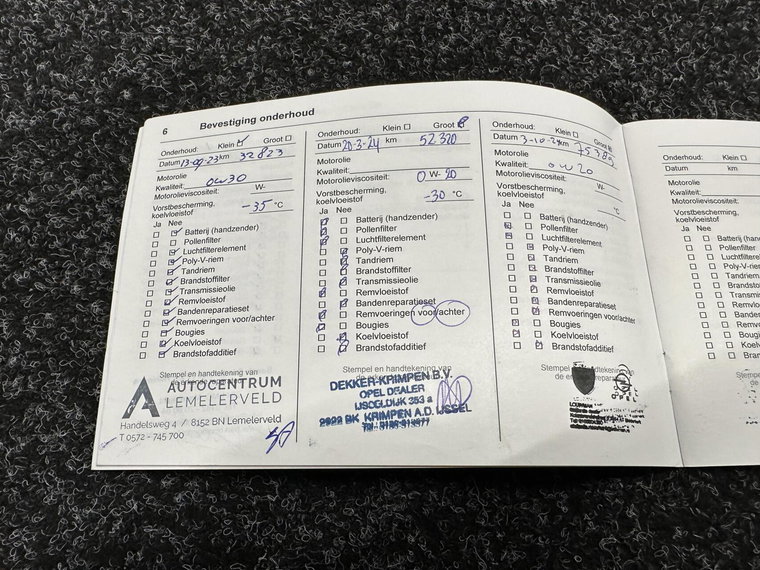 6 Bevestiging onderhoud
Onderhoud: Klein Groot
Datum 13-09-23 km 32823
Motorolie
Kwaliteit: 0W30
Motorolieviscositeit: W-
Vorstbescherming,
koelvloeistof -35 °C
Ja Nee
Batterij (handzender)
Pollenfilter
Luchtfilterelement
Poly-V-riem
Tandriem
Brandstoffilter
Transmissieolie
Remvloeistof
Bandenreparatieset
Remvoeringen voor/achter
Bougies
Koelvloeistof
Brandstofadditief
Stempel en handtekening van
AUTOCENTRUM
LEMELERVELD
Handelsweg 4 / 8152 BN Lemelerveld
T 0572 - 745 700
Onderhoud: Klein Groot
Datum 20-3-24 km 52320
Motorolie
Kwaliteit:
Motorolieviscositeit: 0 W- 20
Vorstbescherming,
koelvloeistof -30 °C
Ja Nee
Batterij (handzender)
Pollenfilter
Luchtfilterelement
Poly-V-riem
Tandriem
Brandstoffilter
Transmissieolie
Remvloeistof
Bandenreparatieset
Remvoeringen voor/achter
Bougies
Koelvloeistof
Brandstofadditief
Stempel en handtekening van
DEKKER-KRIMPEN B.V.
OPEL DEALER
IJSCELDIJK 353 a
2922 BK KRIMPEN A.D. IJSSEL
Onderhoud: Klein Groot
Datum 3-10-24 km 75389
Motorolie
Kwaliteit: 0W20
Motorolieviscositeit: W-
Vorstbescherming,
koelvloeistof °C
Ja Nee
Batterij (handzender)
Pollenfilter
Luchtfilterelement
Poly-V-riem
Tandriem
Brandstoffilter
Transmissieolie
Remvloeistof
Bandenreparatieset
Remvoeringen voor/achter
Bougies
Koelvloeistof
Brandstofadditief
Stempel en handtekening van
OPEL
Onderhoud: Klein
Datum km
Motorolie
Kwaliteit:
Motorolieviscositeit:
Vorstbescherming,
koelvloeistof
Ja Nee
Batterij (han
Pollenfilter
Luchtfilterel
Poly-V-riem
Tandriem
Brandstoffil
Transmissi
Remvloeis
Bandenrep
Remvoerin
Bougies
Koelvloei
Bran
Stempel en hand